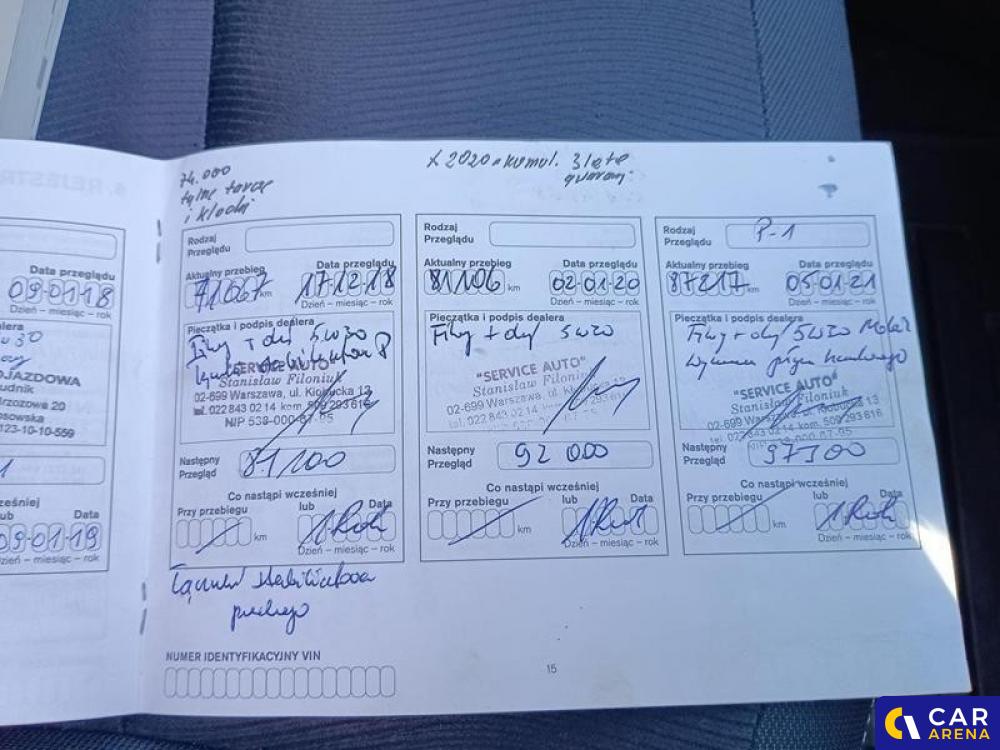 74.000
tylne tarcze
i klocki
X 2020 akumul. 3 lata
gwaranc.
Data przeglądu
09-01-18
Dzień – miesiąc – rok
OJAZDOWA
udnik
Brzozowe 20
osowska
123-10-10-559
1
ześniej
ub Data
09-01-19
Dzień – miesiąc – rok
Rodzaj
Przeglądu
Aktualny przebieg Data przeglądu
71067 km 17-12-18
Dzień – miesiąc – rok
Pieczątka i podpis dealera
Filtry + olej 5W30
"SERVICE AUTO"
Stanisław Filoniuk
02-699 Warszawa, ul. Kłobucka 13
tel. 022 843 02 14 kom. 509 293 616
Następny
Przegląd 81100
Co nastąpi wcześniej
Przy przebiegu lub Data
km 1 Rok
Dzień – miesiąc – rok
Łącznik stabilizatora
prawego
NUMER IDENTYFIKACYJNY VIN
Rodzaj
Przeglądu
Aktualny przebieg Data przeglądu
81106 km 02-01-20
Dzień – miesiąc – rok
Pieczątka i podpis dealera
Filtry + olej 5W30
"SERVICE AUTO"
Stanisław Filoniuk
02-699 Warszawa, ul. Kłobucka 13
tel. 022 843 02 14 kom. 509 293 616
Następny
Przegląd 92 000
Co nastąpi wcześniej
Przy przebiegu lub Data
km 1 Rok
Dzień – miesiąc – rok
Rodzaj
Przeglądu P-1
Aktualny przebieg Data przeglądu
87217 km 05-01-21
Dzień – miesiąc – rok
Pieczątka i podpis dealera
Filtry + olej 5W30
Wymiana płynu hamulcowego
"SERVICE AUTO"
Stanisław Filoniuk
02-699 Warszawa, ul. Kłobucka 13
tel. 022 843 02 14 kom. 509 293 616
Następny
Przegląd 97300
Co nastąpi wcześniej
Przy przebiegu lub Data
km 1 Rok
Dzień – miesiąc – rok
15
CAR
ARENA